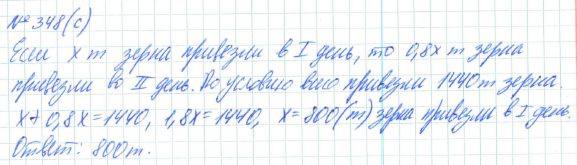 № 348(с)
Если x т зерна привезли в I день, то 0,8x т зерна
привезли во II день. По условию всего привезли 1440 т зерна.
x + 0,8x = 1440, 1,8x = 1440, x = 800 (т) зерна привезли в I день.
Ответ: 800 т.